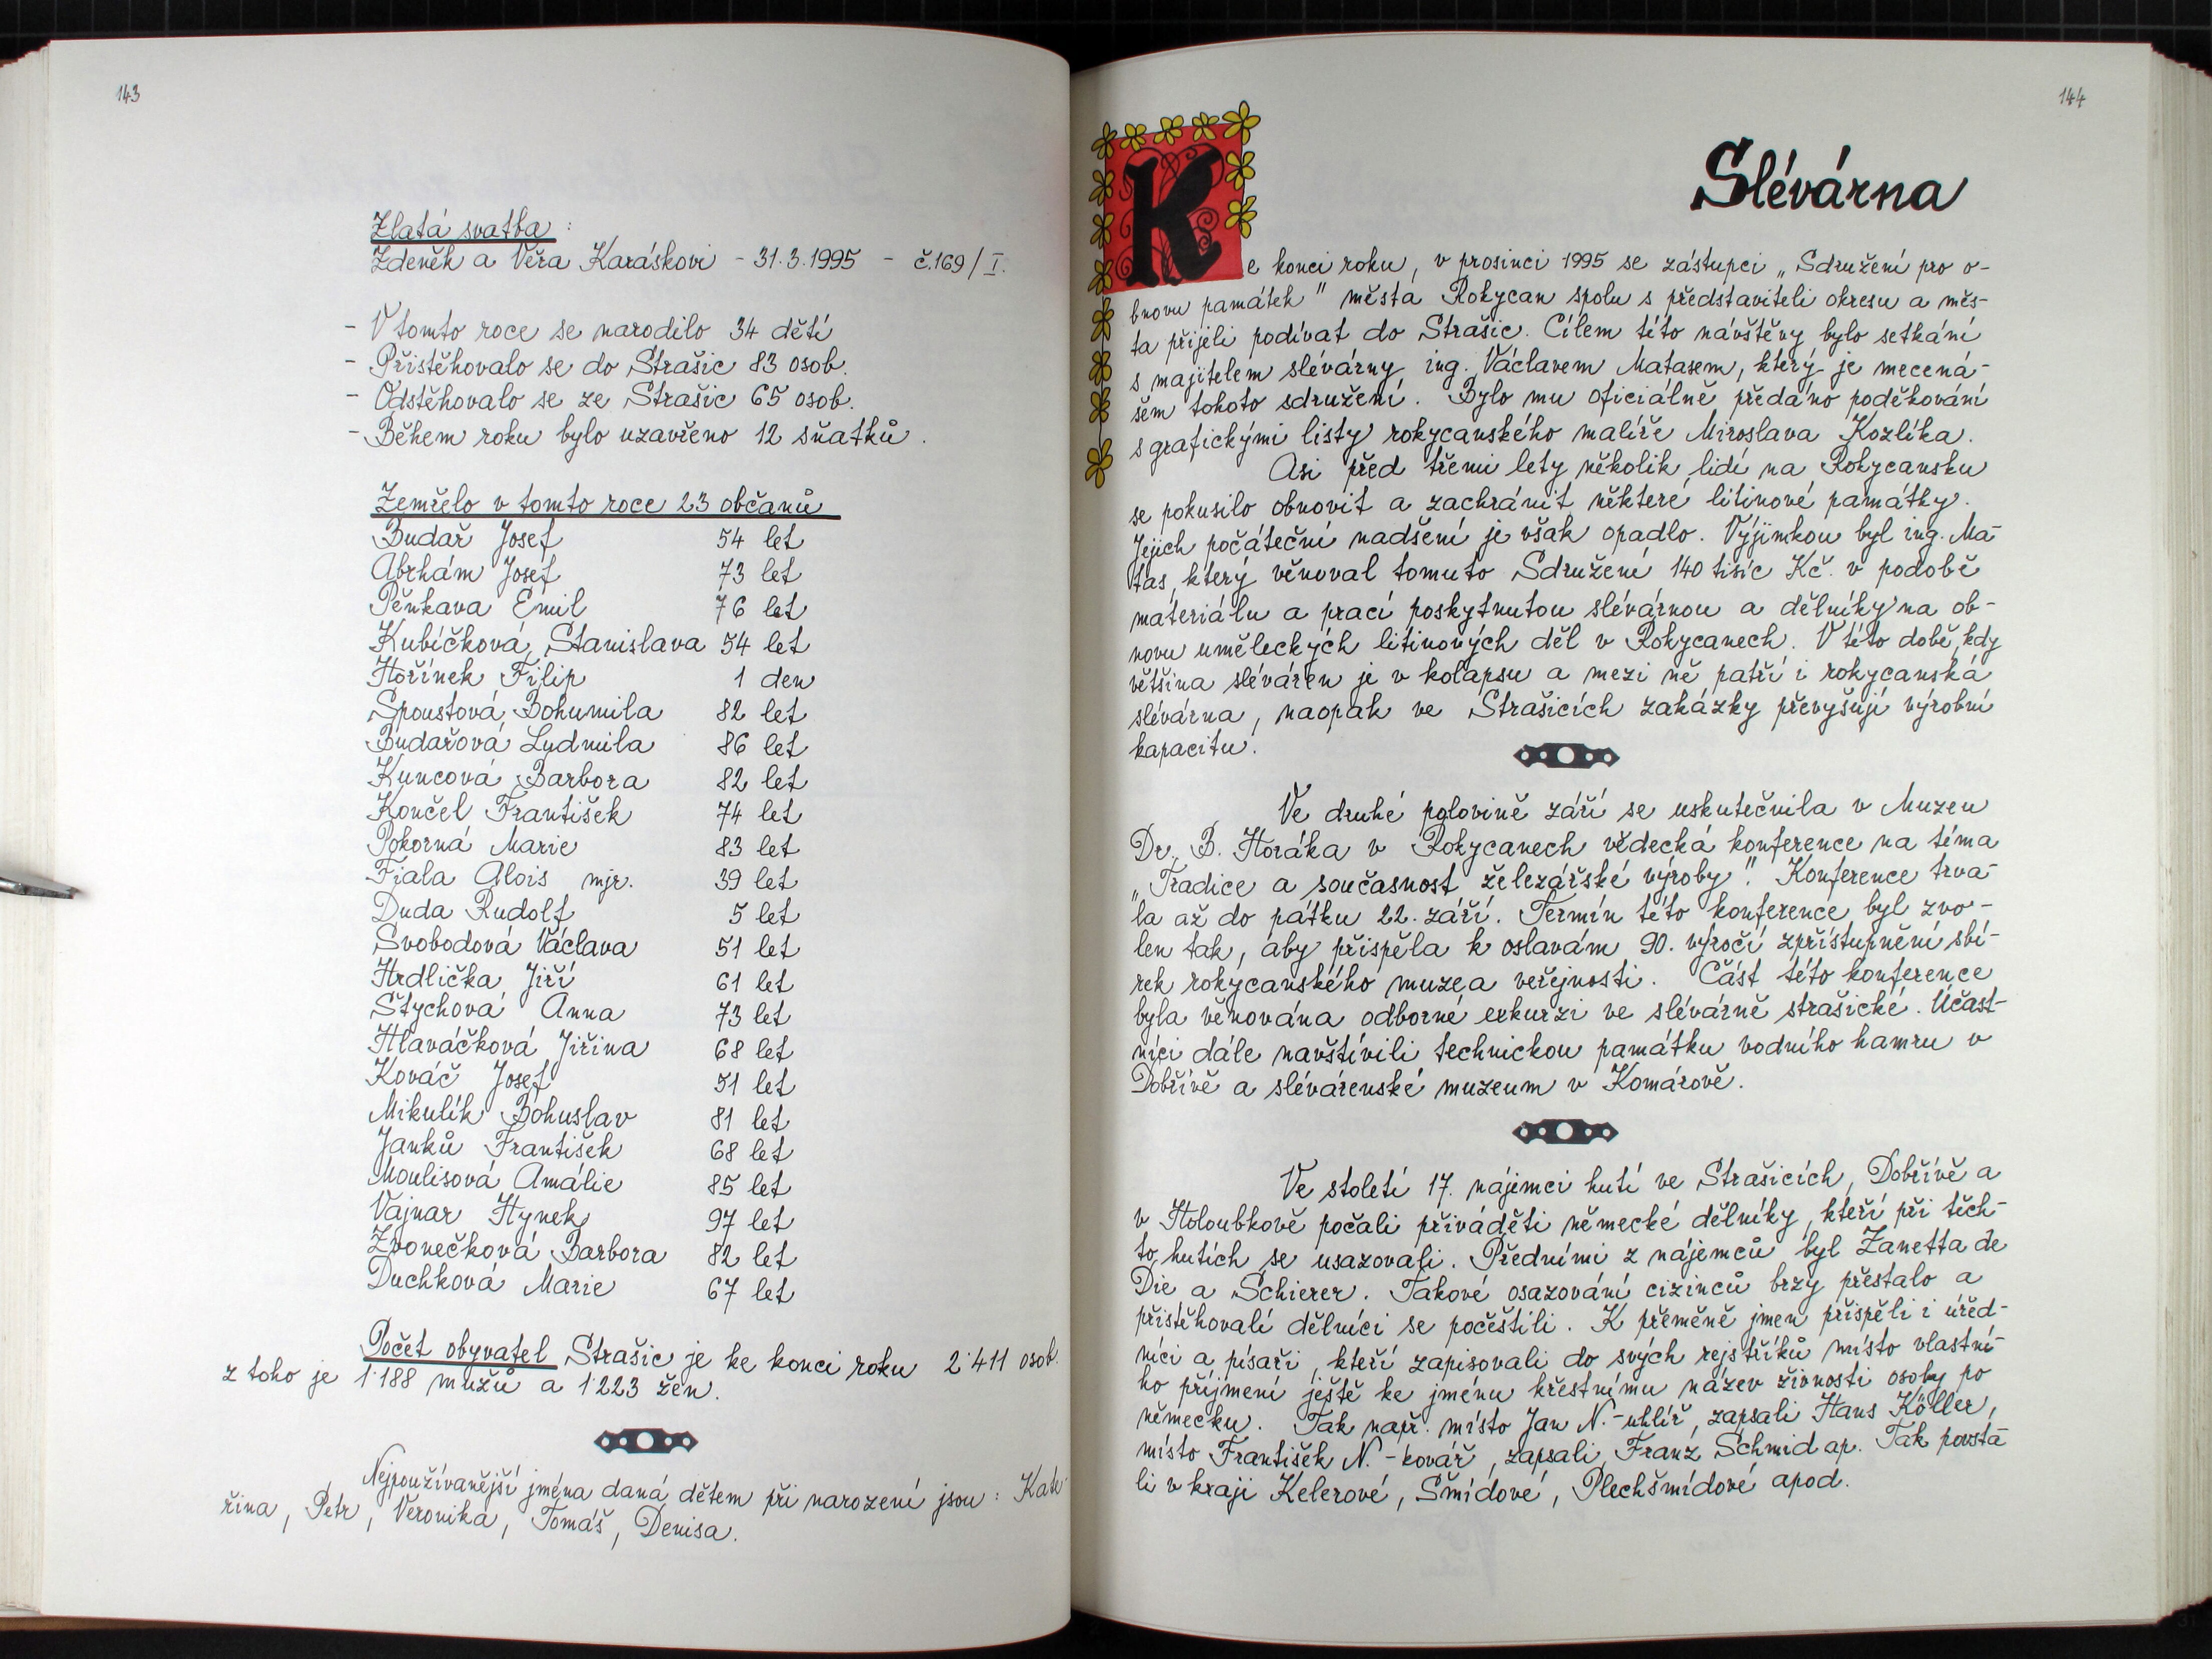 143
Zlatá svatba :
Zdeněk a Věra Karáskovi - 31.3.1995 - č.169/I.
- V tomto roce se narodilo 34 dětí
- Přistěhovalo se do Strašic 83 osob.
- Odstěhovalo se ze Strašic 65 osob.
- Během roku bylo uzavřeno 12 sňatků.
Zemřelo v tomto roce 23 občanů
Budař Josef 54 let
Abrhám Josef 73 let
Pěnkava Emil 76 let
Kubíčková Stanislava 54 let
Hořínek Filip 1 den
Spoustová Bohumila 82 let
Budařová Lydmila 86 let
Kuncová Barbora 82 let
Končel František 74 let
Pokorná Marie 83 let
Fiala Alois mjr. 39 let
Duda Rudolf 5 let
Svobodová Václava 51 let
Hrdlička Jiří 61 let
Štychová Anna 73 let
Hlaváčková Jiřina 68 let
Kováč Josef 51 let
Mikulík Bohuslav 81 let
Janků František 68 let
Moulisová Amálie 85 let
Vajnar Hynek 97 let
Zvonečková Barbora 82 let
Duchková Marie 67 let
Počet obyvatel Strašic je ke konci roku 2'411 osob.
z toho je 1'188 mužů a 1'223 žen.
Nejpoužívanější jména daná dětem při narození jsou: Kate-
řina, Petr, Veronika, Tomáš, Denisa.
144
Slévárna
Ke konci roku, v prosinci 1995 se zástupci „Sdružení pro o-
bnovu památek" města Rokycan spolu s představiteli okresu a měs-
ta přijeli podívat do Strašic. Cílem této návštěvy bylo setkání
s majitelem slévárny ing. Václavem Matasem, který je mecená-
šem tohoto sdružení. Bylo mu oficiálně předáno poděkování
s grafickými listy rokycanského malíře Miroslava Kozlíka.
Asi před třemi lety několik lidí na Rokycansku
se pokusilo obnovit a zachránit některé litinové památky.
Jejich počáteční nadšení je však opadlo. Výjimkou byl ing. Ma-
tas, který věnoval tomuto Sdružení 140 tisíc Kč. v podobě
materiálu a prací poskytnutou slévárnou a dělníky na ob-
novu uměleckých litinových děl v Rokycanech. V této době, kdy
většina sléváren je v kolapsu a mezi ně patří i rokycanská
slévárna, naopak ve Strašicích zakázky převyšují výrobní
kapacitu.
Ve druhé polovině září se uskutečnila v Muzeu
Dr. B. Horáka v Rokycanech vědecká konference na téma
„Tradice a současnost železářské výroby". Konference trva-
la až do pátku 22. září. Termín této konference byl zvo-
len tak, aby přispěla k oslavám 90. výročí zpřístupnění sbí-
rek rokycanského muzea veřejnosti. Část této konference
byla věnována odborné exkurzi ve slévárně strašické. Účast-
níci dále navštívili technickou památku vodního hamru v
Dobřívě a slévárenské muzeum v Komárově.
Ve století 17. nájemci hutí ve Strašicích, Dobřívě a
v Holoubkově počali přiváděti německé dělníky, kteří při těch-
to hutích se usazovali. Předními z nájemců byl Zanetta de
Die a Schierer. Takové osazování cizinců brzy přestalo a
přistěhovalí dělníci se počeštili. K přeměně jmen přispěli i úřed-
níci a písaři, kteří zapisovali do svých rejstříků místo vlastní-
ho příjmení ještě ke jménu křestnímu název živnosti osoby po
německu. Tak např. místo Jan N.-uhlíř, zapsali Hans Köller,
místo František N.-kovář, zapsali Franz Schmid ap. Tak povsta-
li v kraji Kelerové, Šmídové, Plechšmídové apod.